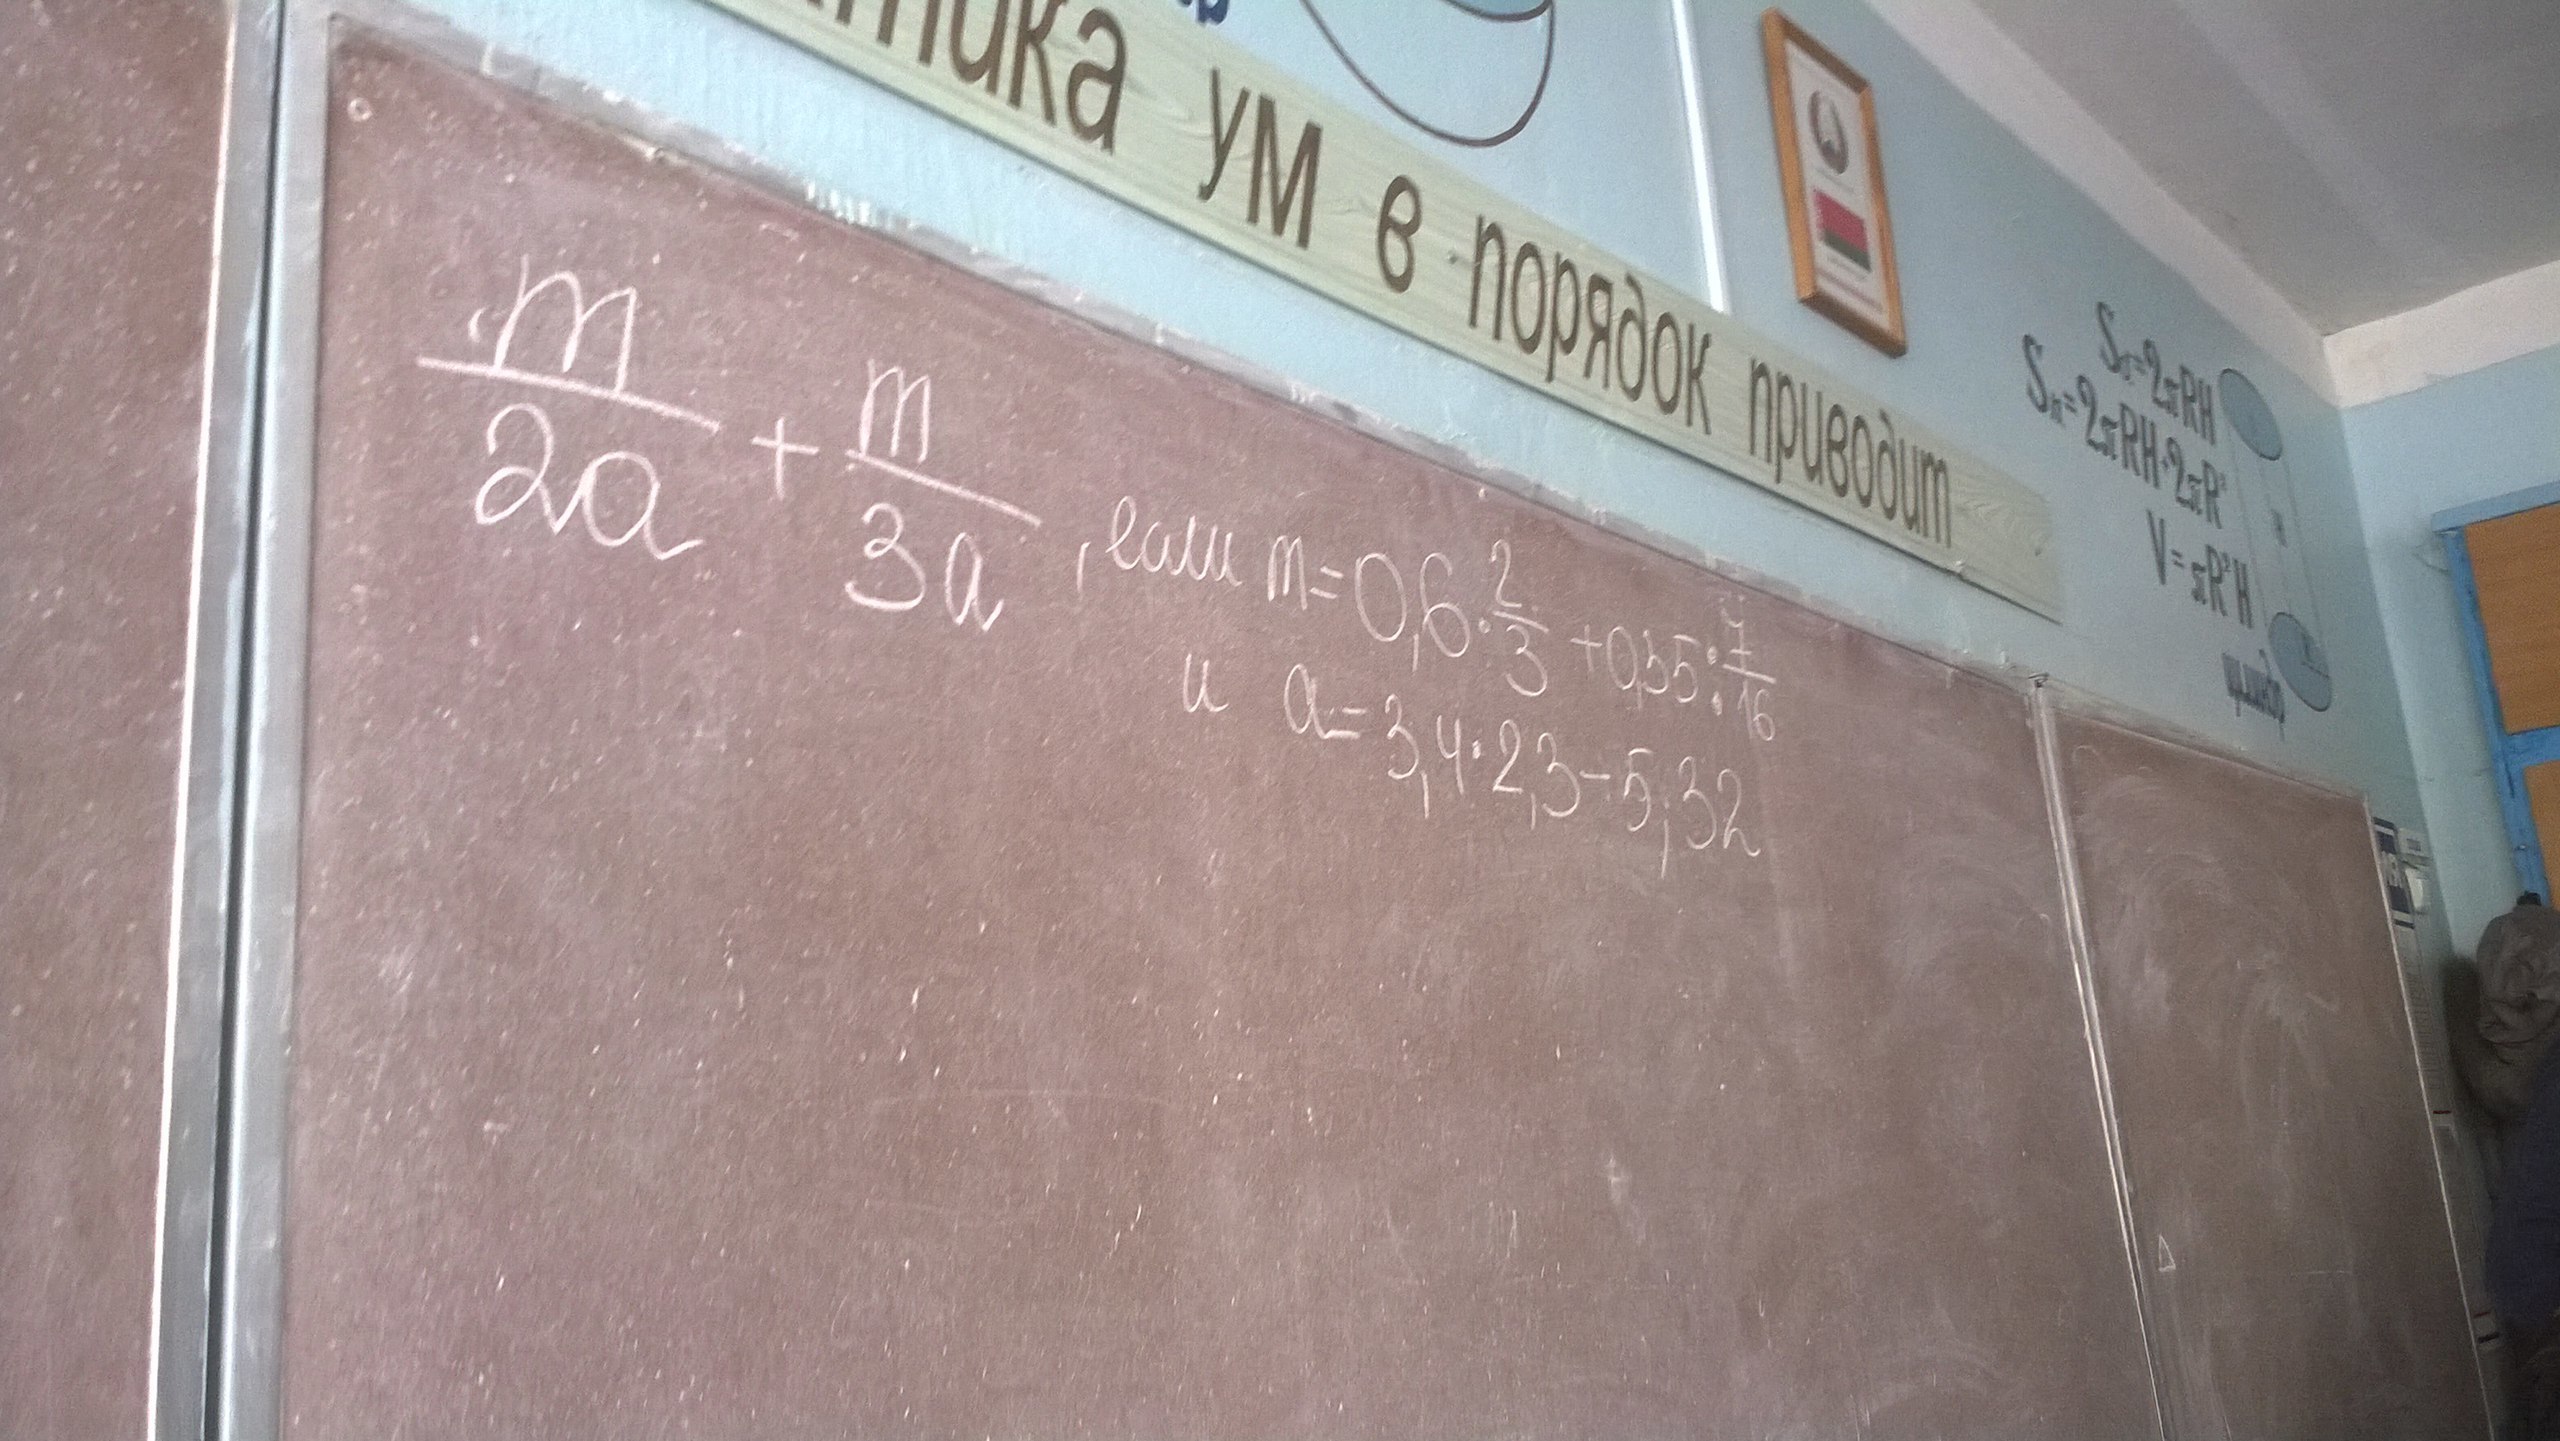 ум в порядок приводит
Sб=2πRH
Sп=2πRH+2πR²
V=πR²H
цилиндр
m/2a + m/3a, если m=0,6·2/3+0,35:7/16
и a=3,4·2,3-5,32